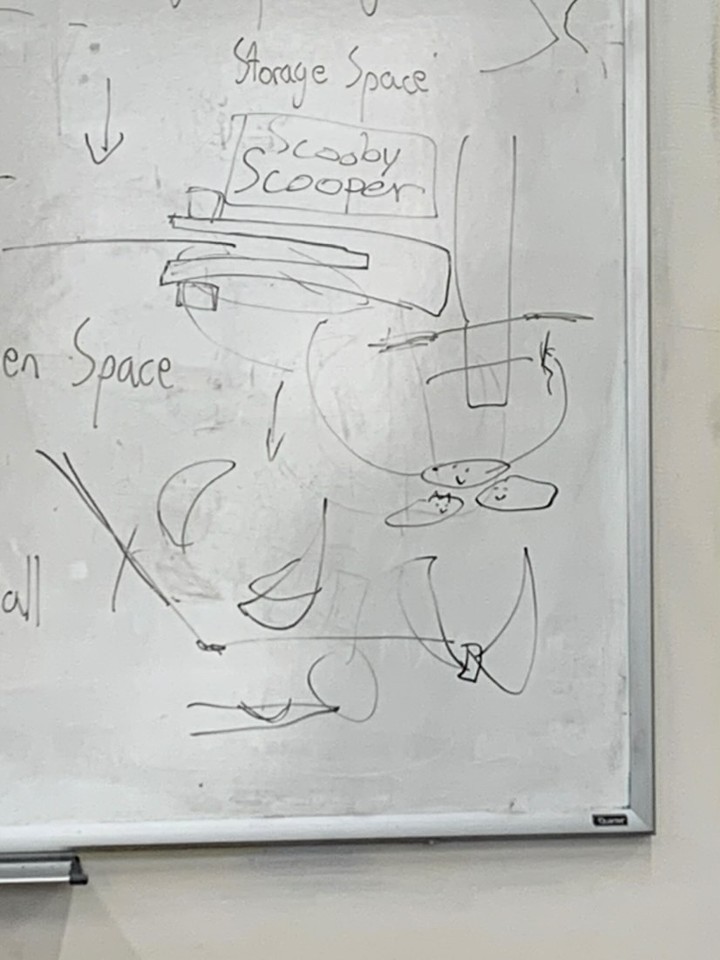 Storage Space
Scooby
Scooper
en Space
all
Quartet